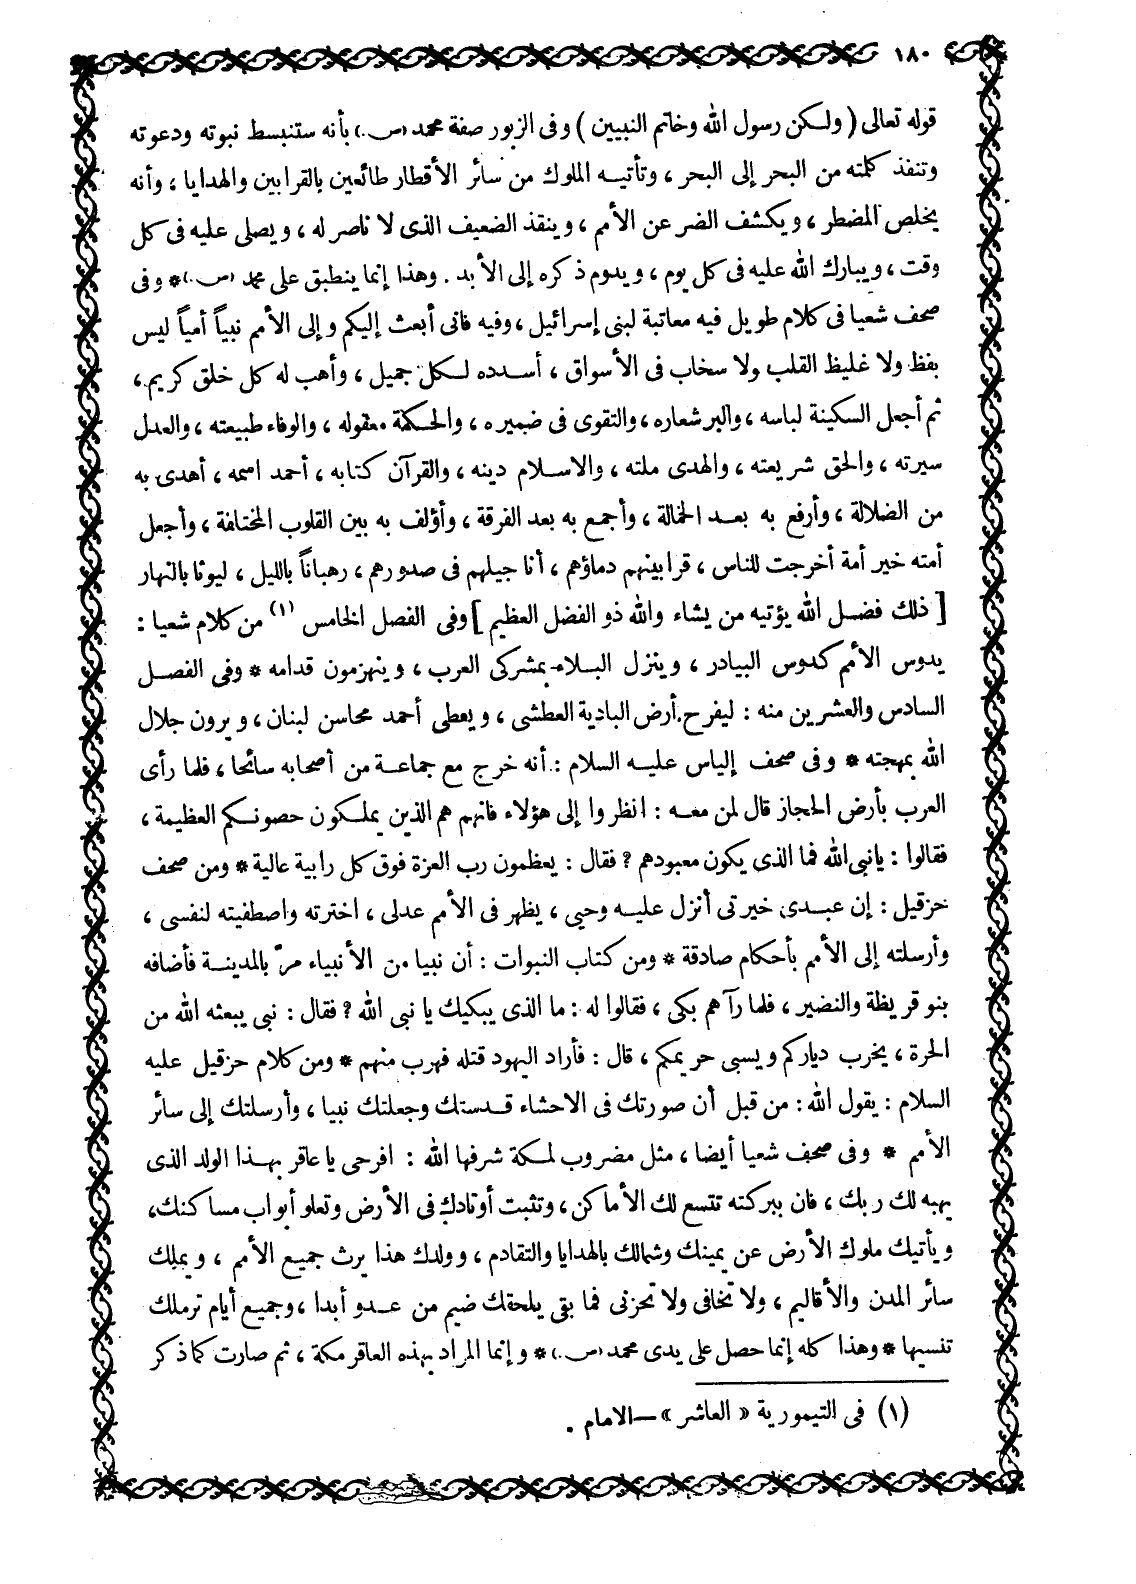 ١٨٠
قوله تعالى ( ولكن رسول الله وخاتم النبيين ) وفى الزبور صفة محمد (ص.) بأنه ستنبسط نبوته ودعوته
وتنفذ كلمته من البحر إلى البحر ، وتأتيه الملوك من سائر الأقطار طائعين بالقرابين والهدايا ، وأنه
يخلص المضطر ، ويكشف الضر عن الأمم ، وينقذ الضعيف الذى لا ناصر له ، ويصلى عليه فى كل
وقت ، ويبارك الله عليه فى كل يوم ، ويدوم ذكره إلى الأبد . وهذا إنما ينطبق على محمد (ص.) * وفى
صحف شعيا فى كلام طويل فيه معاتبة لبنى إسرائيل ، وفيه فانى أبعث إليكم وإلى الأمم نبياً أمياً ليس
بفظ ولا غليظ القلب ولا سخاب فى الأسواق ، أسدده لكل جميل ، وأهب له كل خلق كريم ،
ثم أجعل السكينة لباسه ، والبر شعاره ، والتقوى فى ضميره ، والحكمة معقوله ، والوفاء طبيعته ، والعدل
سيرته ، والحق شريعته ، والهدى ملته ، والاسلام دينه ، والقرآن كتابه ، أحمد اسمه ، أهدى به
من الضلالة ، وأرفع به بعد الخمالة ، وأجمع به بعد الفرقة ، وأؤلف به بين القلوب المختلفة ، وأجعل
أمته خير أمة أخرجت للناس ، قرابينهم دماؤهم ، أناجيلهم فى صدورهم ، رهباناً بالليل ، ليوثا بالنهار
[ ذلك فضل الله يؤتيه من يشاء والله ذو الفضل العظيم ] وفى الفصل الخامس (١) من كلام شعيا :
يدوس الأمم كدوس البيادر ، وينزل البلاء بمشركى العرب ، وينهزمون قدامه * وفى الفصل
السادس والعشرين منه : ليفرح أرض البادية العطشى ، ويعطى أحمد محاسن لبنان ، ويرون جلال
الله بمهجته * وفى صحف إلياس عليه السلام : أنه خرج مع جماعة من أصحابه سائحا ، فلما رأى
العرب بأرض الحجاز قال لمن معه : انظروا إلى هؤلاء فانهم هم الذين يملكون حصونكم العظيمة ،
فقالوا : يا نبى الله فما الذى يكون معبودهم ؟ فقال : يعظمون رب العزة فوق كل رابية عالية * ومن صحف
حزقيل : إن عبدى خيرتى أنزل عليه وحيي ، يظهر فى الأمم عدلى ، اخترته واصطفيته لنفسى ،
وأرسلته إلى الأمم بأحكام صادقة * ومن كتاب النبوات : أن نبيا من الأنبياء مرّ بالمدينة فأضافه
بنو قريظة والنضير ، فلما رآهم بكى ، فقالوا له : ما الذى يبكيك يا نبى الله ؟ فقال : نبى يبعثه الله من
الحرة ، يخرب دياركم ويسبى حريمكم ، قال : فأراد اليهود قتله فهرب منهم * ومن كلام حزقيل عليه
السلام : يقول الله : من قبل أن صورتك فى الاحشاء قدستك وجعلتك نبيا ، وأرسلتك إلى سائر
الأمم * وفى صحف شعيا أيضا ، مثل مضروب لمكة شرفها الله : افرحى يا عاقر بهذا الولد الذى
يهبه لك ربك ، فان ببركته تتسع لك الأماكن ، وتثبت أوتادك فى الأرض وتعلو أبواب مساكنك ،
ويأتيك ملوك الأرض عن يمينك وشمالك بالهدايا والتقادم ، وولدك هذا يرث جميع الأمم ، ويملك
سائر المدن والأقاليم ، ولا تخافى ولا تحزنى فما بقى يلحقك ضيم من عدو أبدا ، وجميع أيام ترملك
تنسيها * وهذا كله إنما حصل على يدى محمد (ص.) * وإنما المراد بهذه العاقر مكة ، ثم صارت كما ذكر
(١) فى التيمورية « العاشر » — الامام .